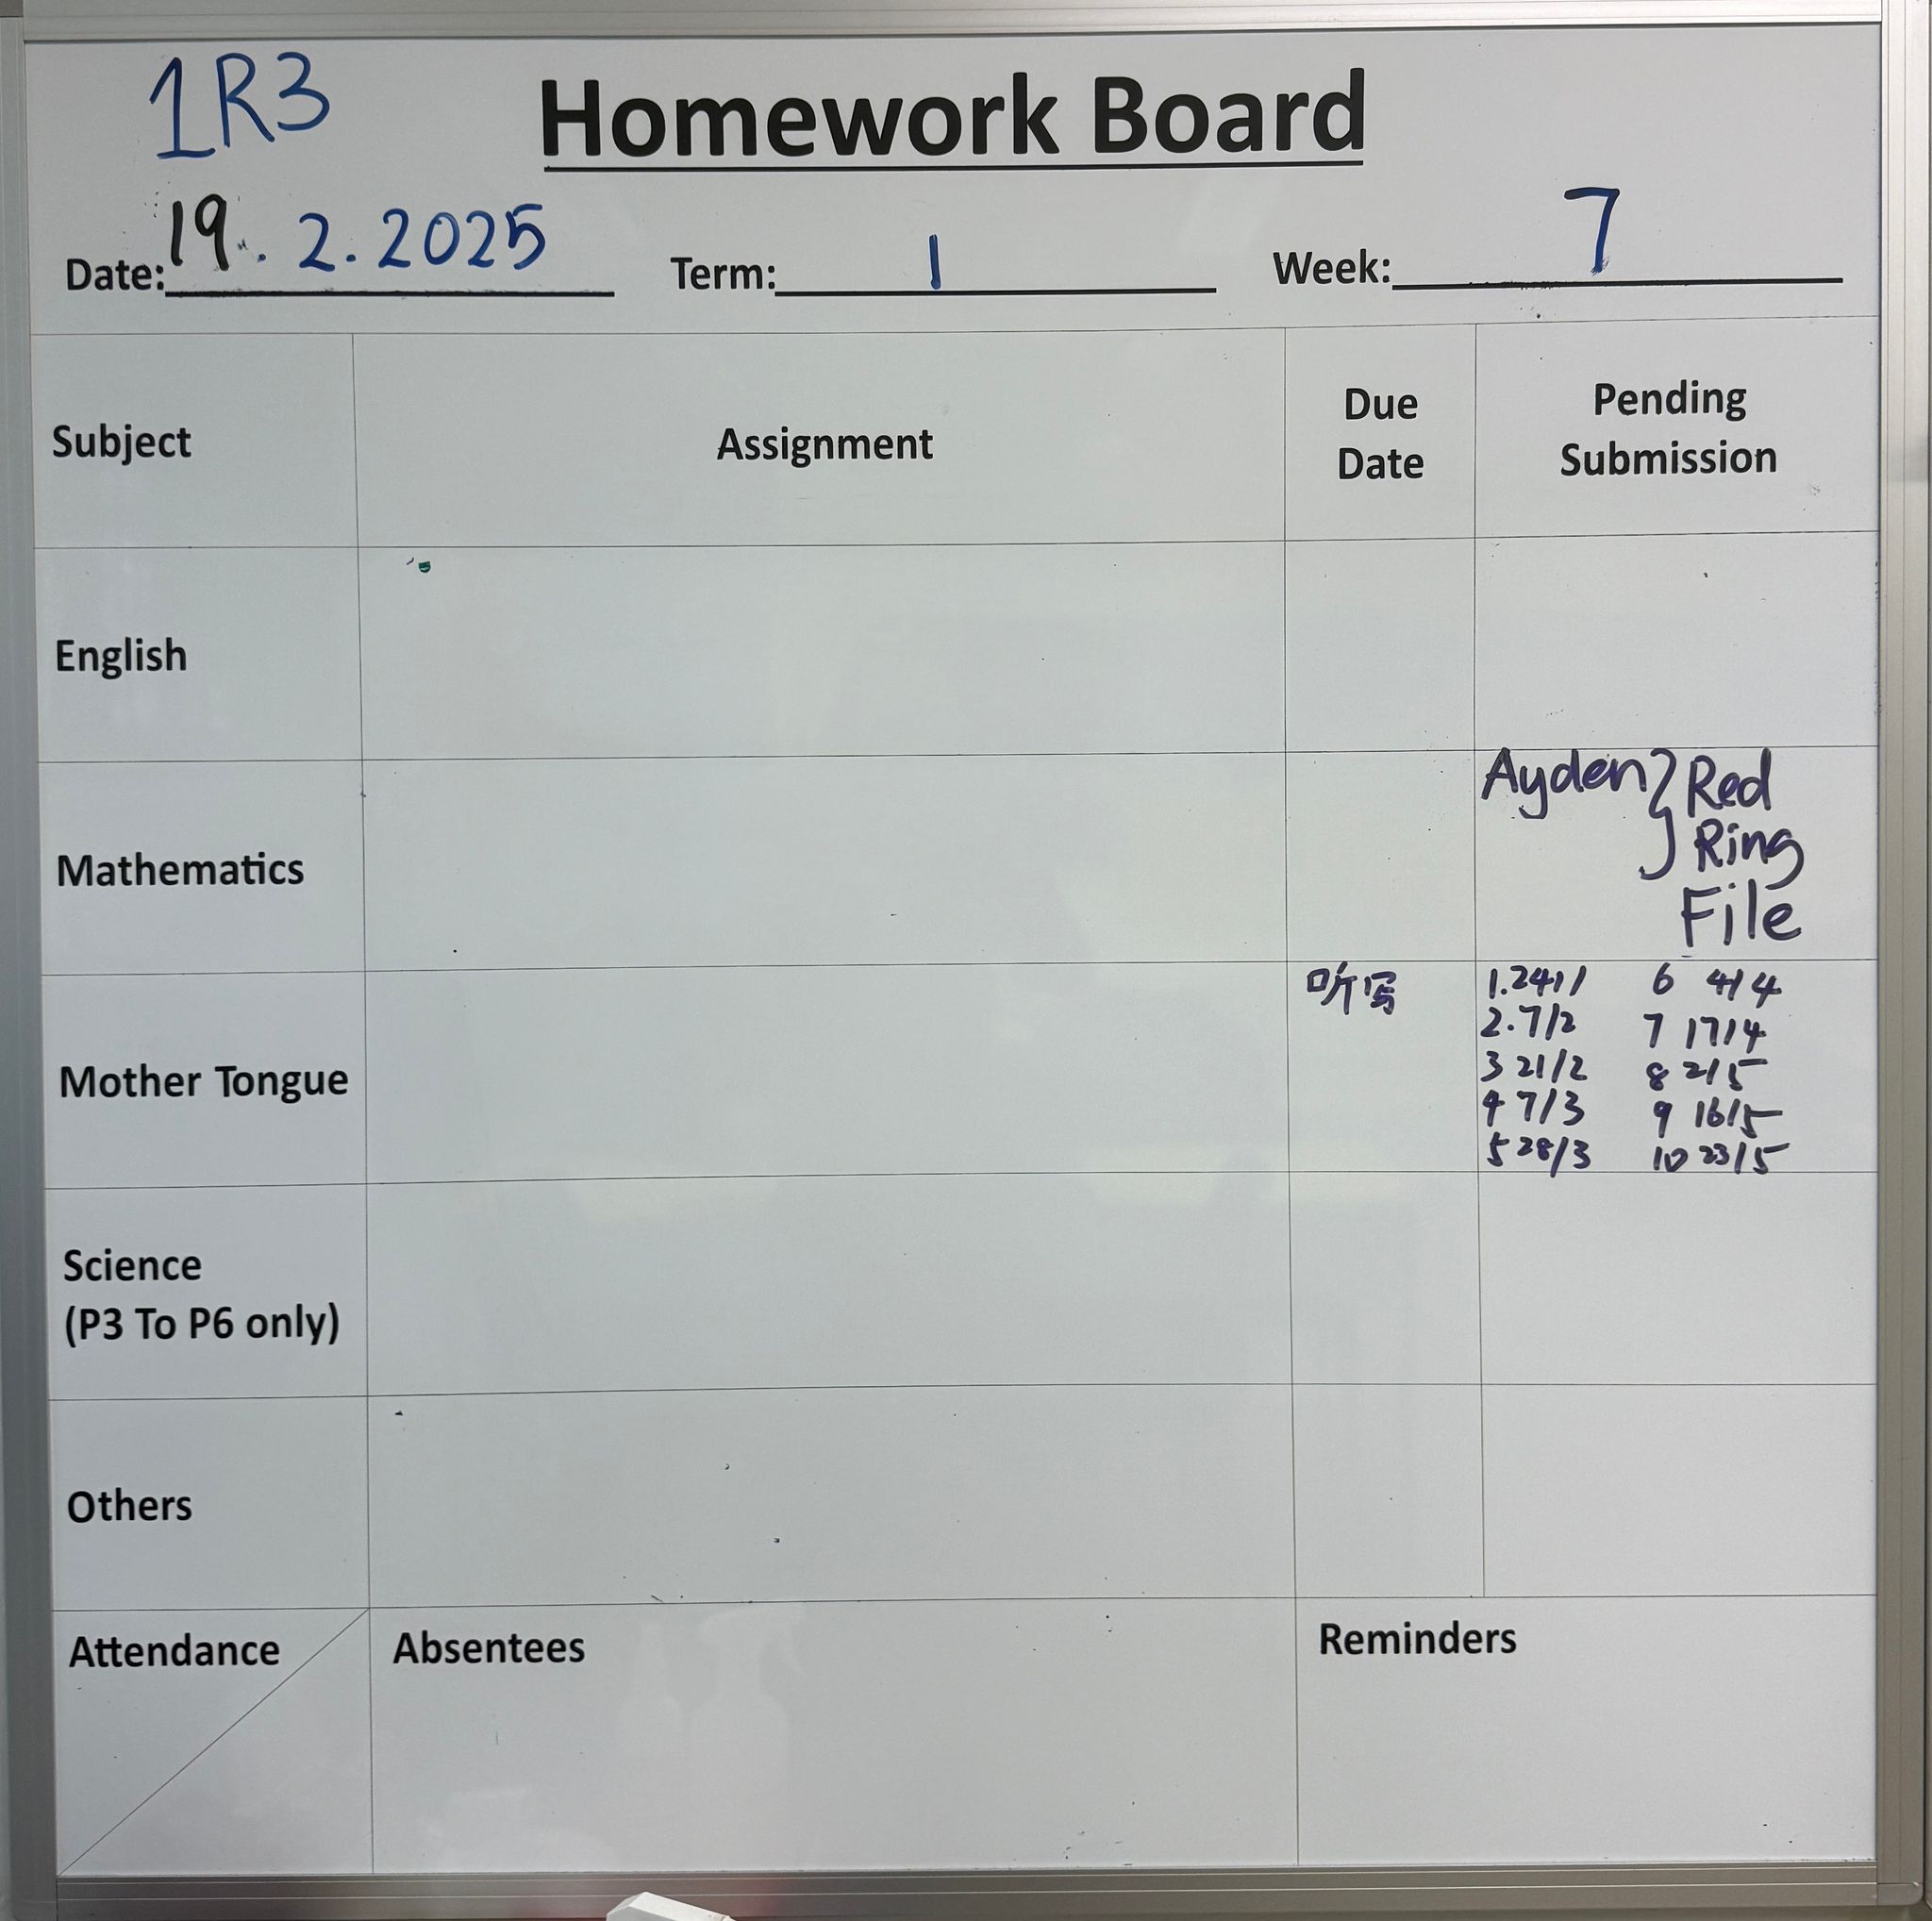 1R3
Homework Board
Date: 19. 2. 2025 Term: 1 Week: 7
Subject Assignment Due Date Pending Submission
English
Mathematics
Ayden } Red
Ring
File
Mother Tongue
听写
1. 24/1 6 4/4
2. 7/2 7 17/4
3 21/2 8 2/5
4 7/3 9 16/5
5 28/3 10 23/5
Science
(P3 To P6 only)
Others
Attendance Absentees Reminders